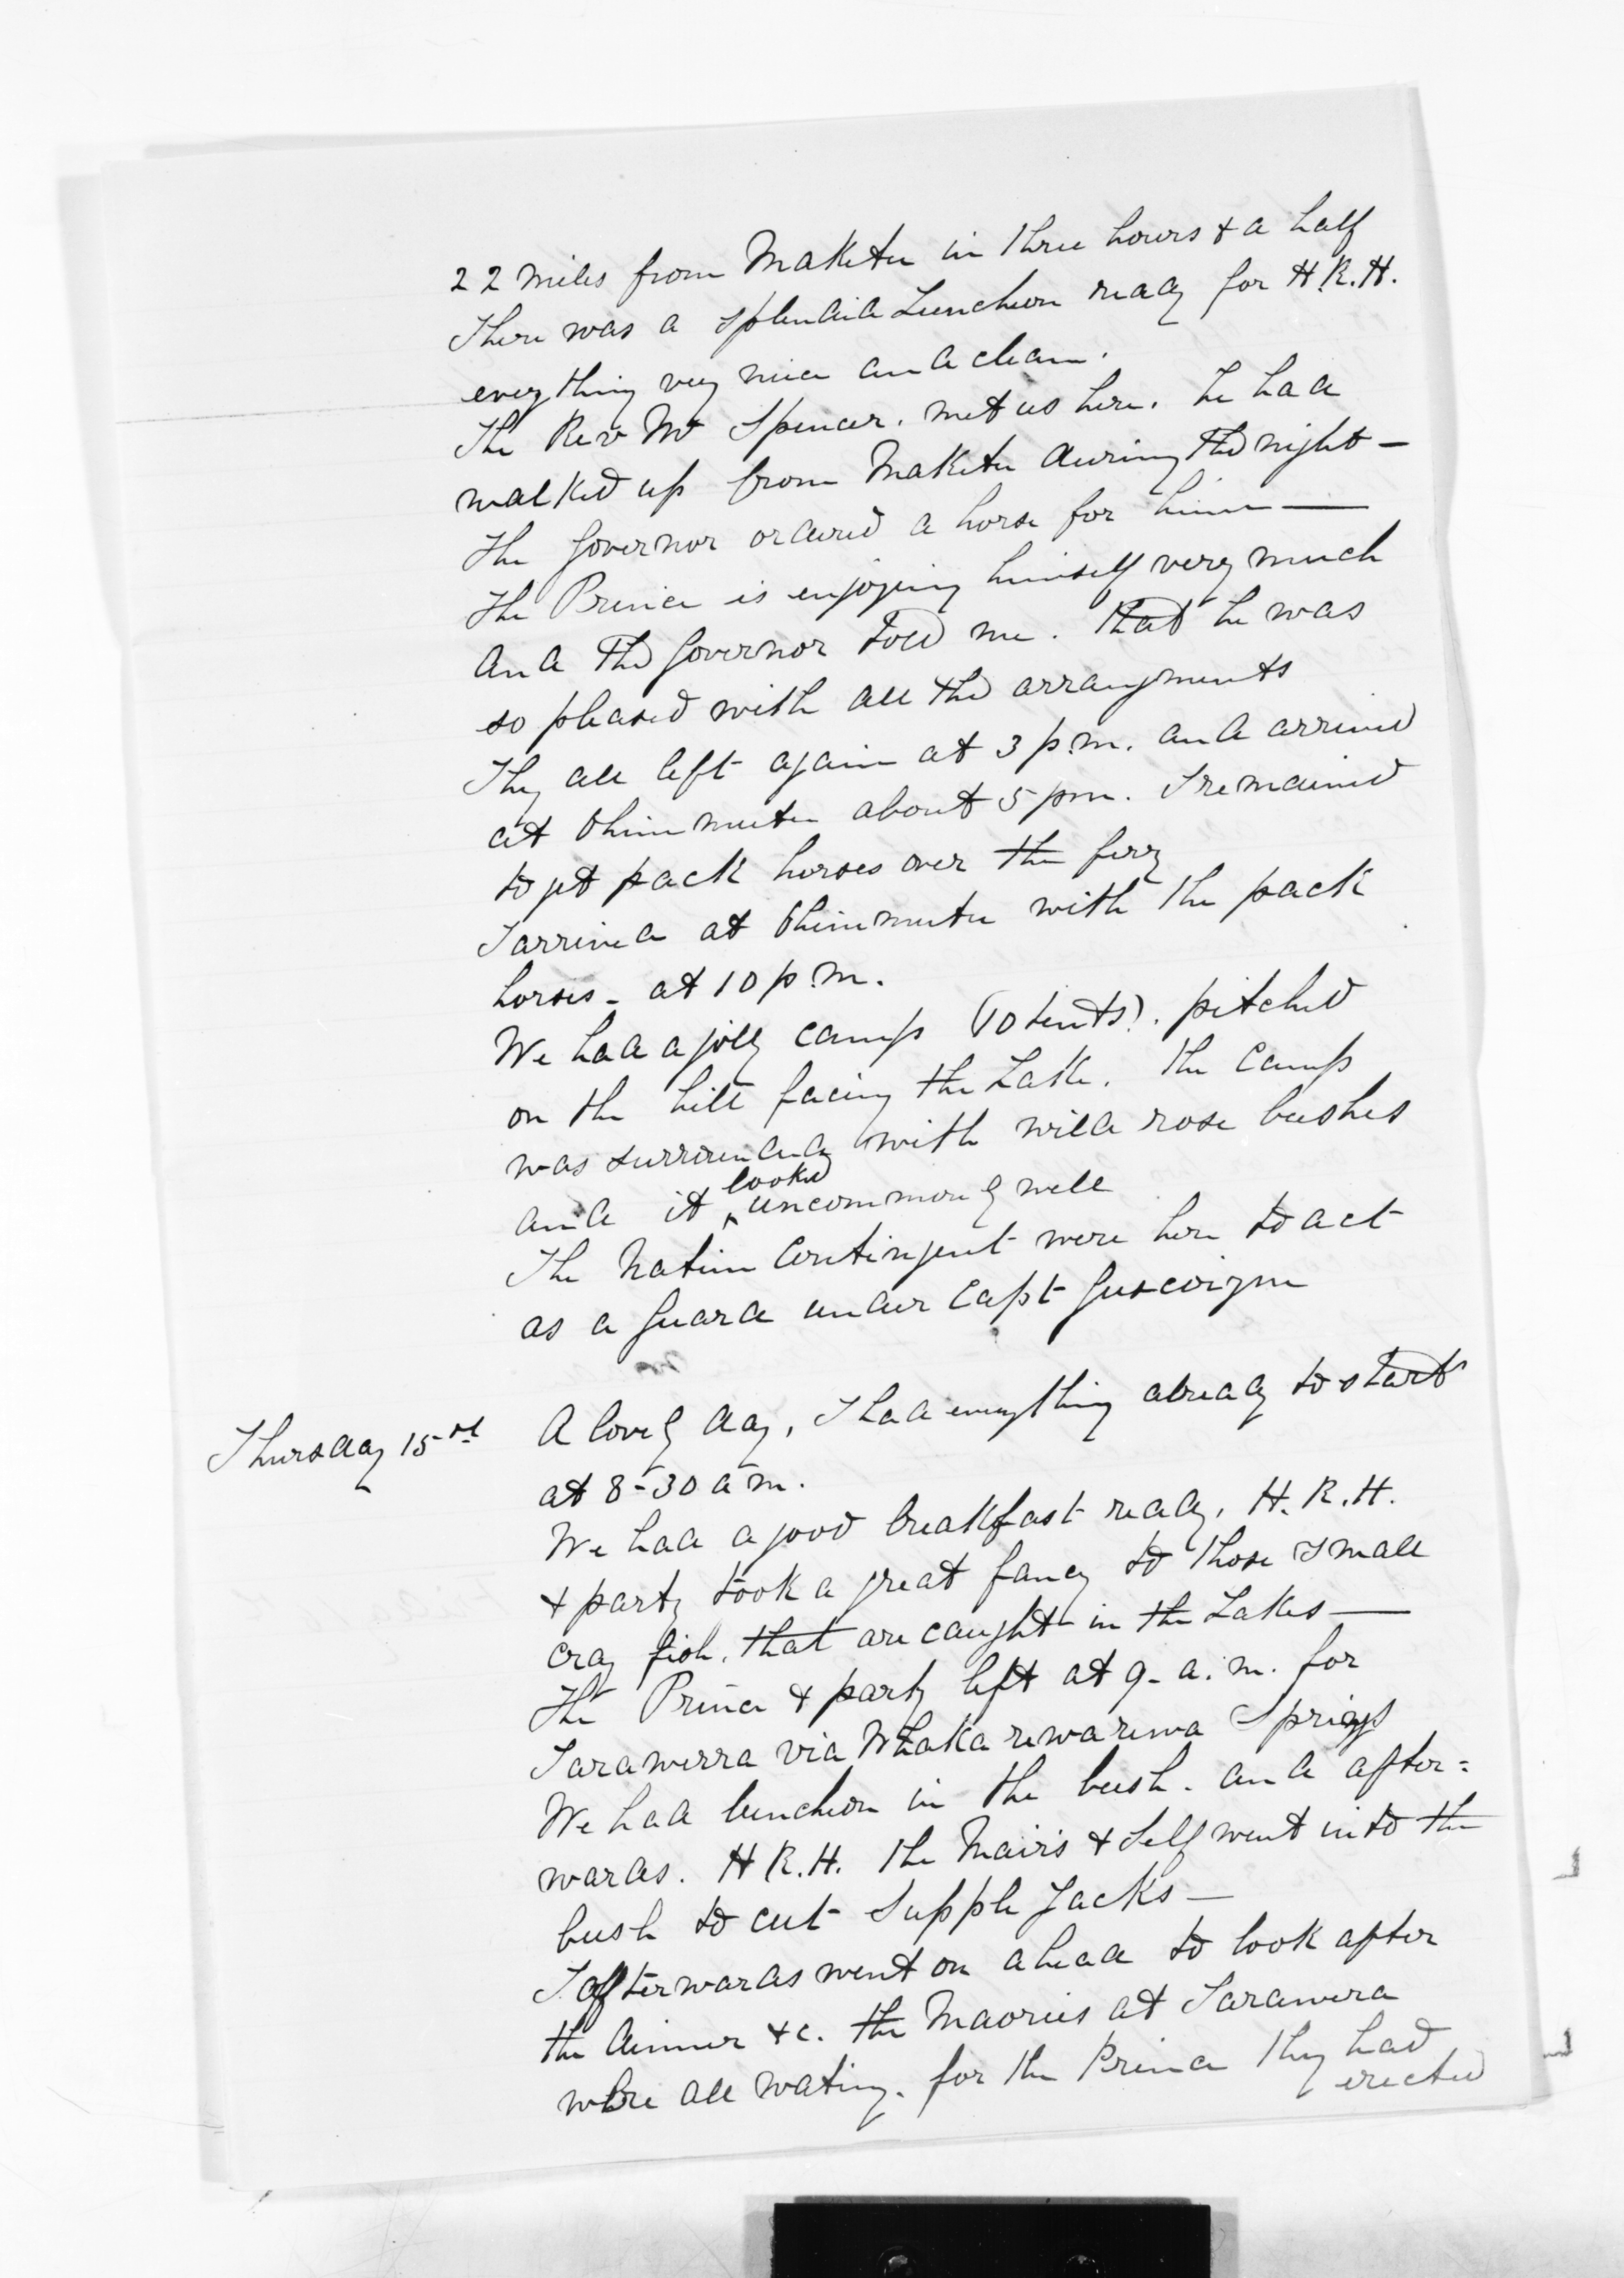 22 miles from Maketu in three hours & a half
There was a splendid Luncheon ready for H.R.H.
everything very nice and clean.
The Rev Mr Spencer. met us here. he had
walked up from Maketu during the night —
The Governor ordered a horse for him —
The Prince is enjoying himself very much
and the Governor told me. that he was
so pleased with all the arrangments
They all left again at 3 p.m. and arrived
at Ohinemutu about 5 pm. I remained
to get pack horses over the ferry
I arrived at Ohinemutu with the pack
horses - at 10 p.m.
We had a jolly camp (10 tents). pitched
on the hill facing the Lake. The Camp
was surrounded with wild rose bushes
and it looked uncommonly well
The Native Contingent were here to act
as a Guard under Capt Gascoigne
Thursday 15th A lovely day, I had everything already to start
at 8-30 am.
We had a good breakfast ready. H.R.H.
& party took a great fancy to those small
cray fish. that are caught in the Lakes —
The Prince & party left at 9- a.m. for
Tarawerra via Whakarewarewa Springs
We had luncheon in the bush. and after=
wards. H R.H. the Mairs & Self went into the
bush to cut Supple Jacks —
I afterwards went on ahead to look after
the dinner &c. the Maories at Tarawera
were all wating. for the Prince they had
erected